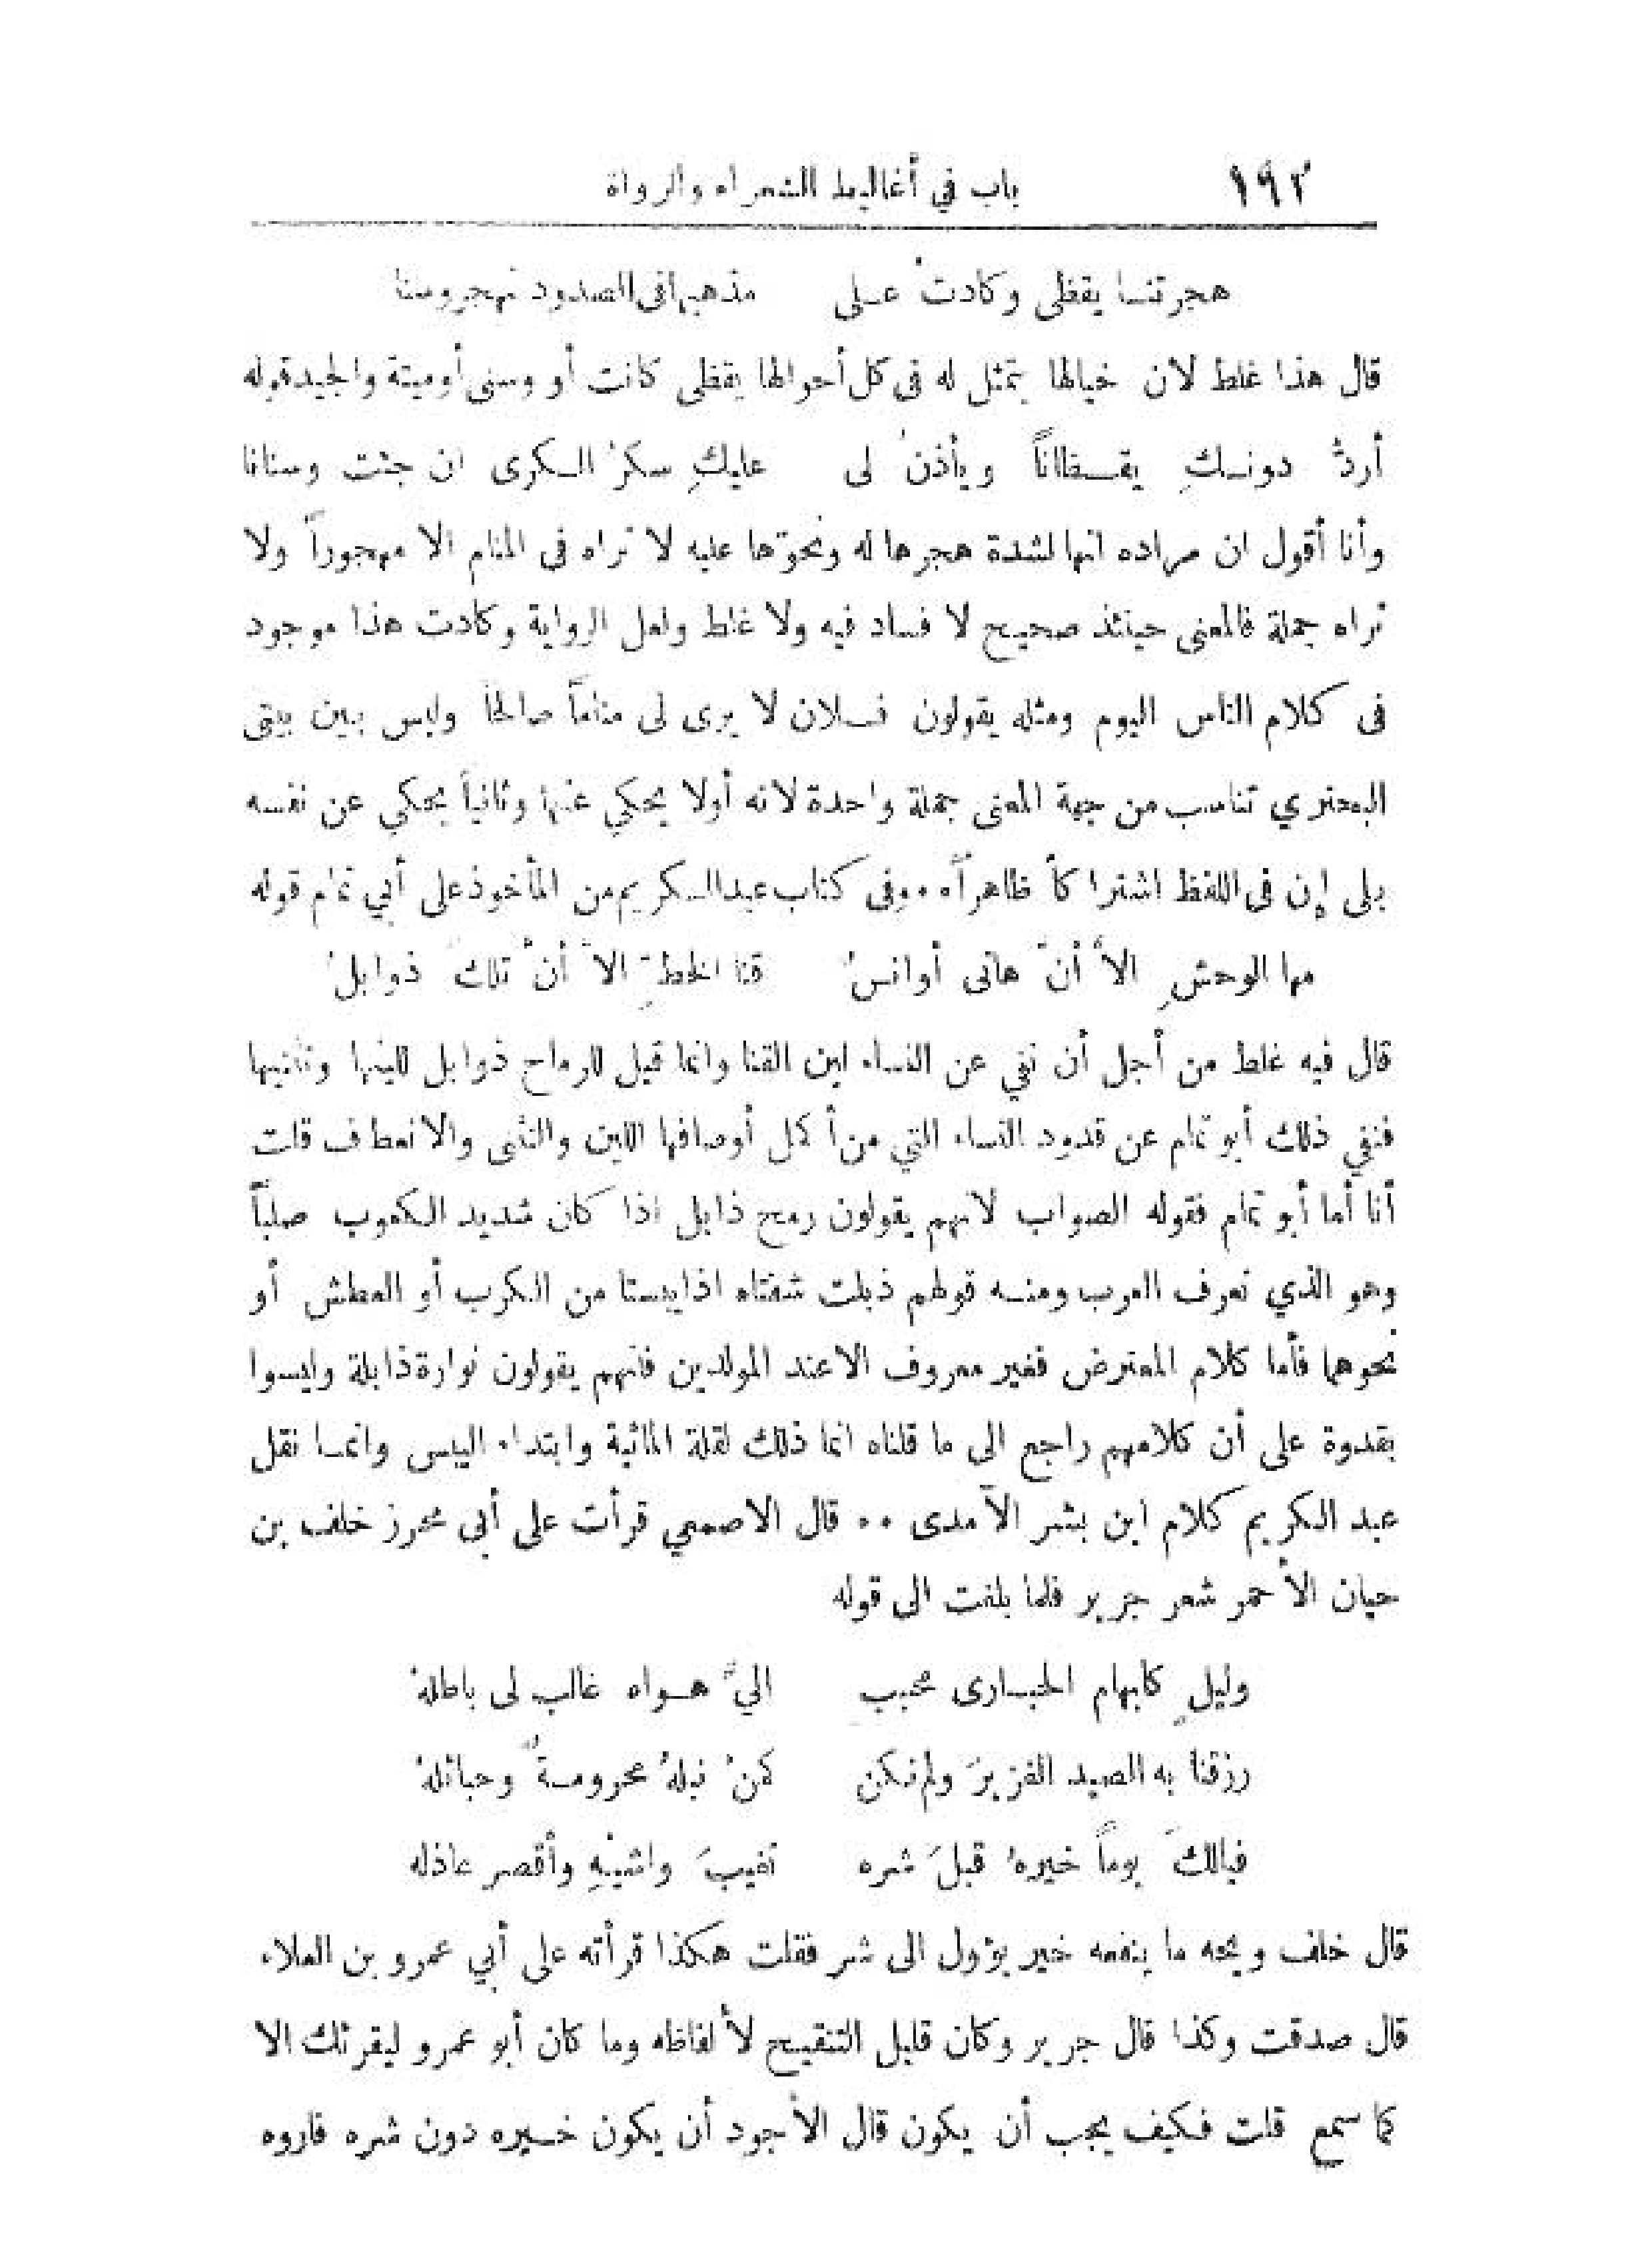 ١٩٢ باب في أغاليط الشعراء والرواة
هجرتنا يقظى وكادتْ على مذهبها فى الصدود تهجر وسنا
قال هذا غلط لان خيالها يتمثل له فى كل أحوالها يقظى كانت أو وسنى أوميتة والجيد قوله
أردُّ دونكِ يقظاناً ويأذنُ لى عليكِ سكرُ الكرى ان جئت وسنانا
وأنا أقول ان مراده انها لشدة هجرها له ونحوّها عليه لا تراه فى المنام الا مهجوراً ولا
تراه جملة فالمعنى حينئذ صحيح لا فساد فيه ولا غلط ولعل الرواية وكادت هذا موجود
فى كلام الناس اليوم ومثله يقولون فلان لا يرى لى مناماً صالحاً وليس بين بيتى
البحتري تناسب من جهة المعنى جملة واحدة لانه أولا يحكي عنها وثانياً يحكي عن نفسه
بلى إن فى اللفظ اشتراكاً ظاهراً ٠٠ وفى كتاب عبد الكريم من المأخوذ على أبي تمام قوله
مها الوحشِ الاَّ أنّ هاتى أوانسُ قنا الخطِّ الاَّ أنْ تلكَ ذوابلُ
قال فيه غلط من أجل أن نفي عن النساء لين القنا وانما قيل للرماح ذوابل للينها وتثنيها
فنفي ذلك أبو تمام عن قدود النساء التي من أكمل أوصافها اللين والتثنى والانعطاف قلت
أنا أما أبو تمام فقوله الصواب لانهم يقولون رمح ذابل اذا كان شديد الكعوب صلباً
وهو الذي تعرف العرب ومنه قولهم ذبلت شفتاه اذا يبستا من الكرب أو العطش أو
نحوهما فأما كلام المعترض فغير معروف الا عند المولدين فانهم يقولون نوارة ذابلة وليسوا
بقدوة على أن كلامهم راجع الى ما قلناه انما ذلك لقلة المائية وابتداء اليبس وانما نقل
عبد الكريم كلام ابن بشر الآمدى ٠٠ قال الاصمعي قرأت على أبى محرز خلف بن
حيان الأحمر شعر جرير فلما بلغت الى قوله
وليلٍ كابهام الحبارى محبب اليَّ هواه غالب لى باطلهُ
رزقنا به الصيد الغزيرَ ولم نكن كمنْ نبلهُ محرومةٌ وحبائلهُ
فيالكَ يوماً خيرهُ قبلَ شره تغيبَ واشيهِ وأقصر عاذله
قال خلف ويحه ما ينفعه خير يؤول الى شر فقلت هكذا قرأته على أبي عمرو بن العلاء
قال صدقت وكذا قال جرير وكان قليل التنقيح لألفاظه وما كان أبو عمرو ليقرئك الا
كما سمع قلت فكيف يجب أن يكون قال الأجود أن يكون خيره دون شره فاروه